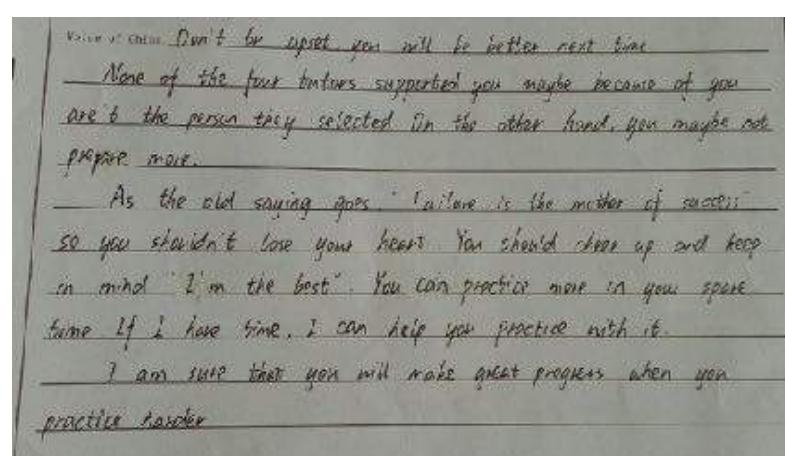 Voice of China. Don't be upset you will be better next time
None of the four tutors supported you maybe because of you
are't the person they selected On the other hand, you maybe not
prepare more.
As the old saying goes "Failure is the mother of success"
so you shouldn't lose your heart You should cheer up and keep
in mind "I'm the best". You can practice more in your spare
time If I have time, I can help you practice with it.
I am sure that you will make great progress when you
practice harder